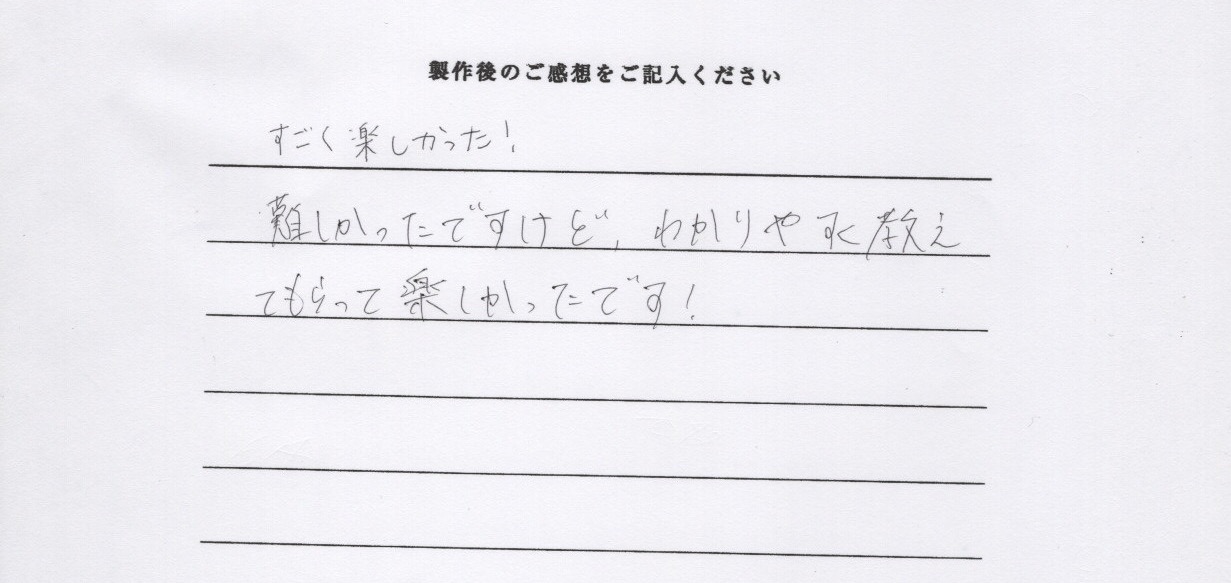 製作後のご感想をご記入ください
すごく楽しかった!
難しかったですけど、わかりやすく教え
てもらって楽しかったです!